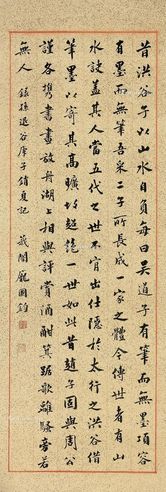 昔洪谷子以山水自負每曰吴道子有筆而無墨項容
有墨而無筆吾采二子所長成一家之體今傳世者有山
水訣蓋其人當五代之世不肯出仕隱於太行之洪谷借
筆墨以寄其高曠超絶一世如此昔趙子固與周公
謹各攜書畫放舟湖上相與評賞酒酣箕踞歌離騷旁若
無人
録孫退谷庚子銷夏記
國鈞